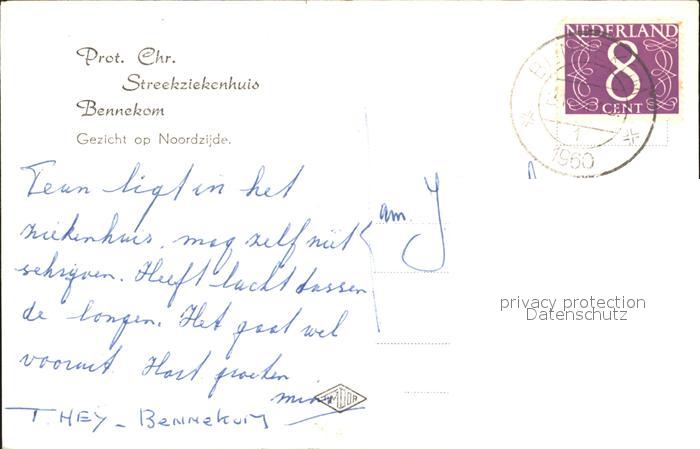 Prot. Chr.
Streekziekenhuis
Bennekom
Gezicht op Noordzijde.
NEDERLAND
8
CENT
1
1960
Teun ligt in het
ziekenhuis, mag zelf niet
schrijven. Heeft lucht tussen
de longen. Het gaat wel
vooruit. Hart groeten
T. HEY - BENNEKOM
am
privacy protection
Datenschutz